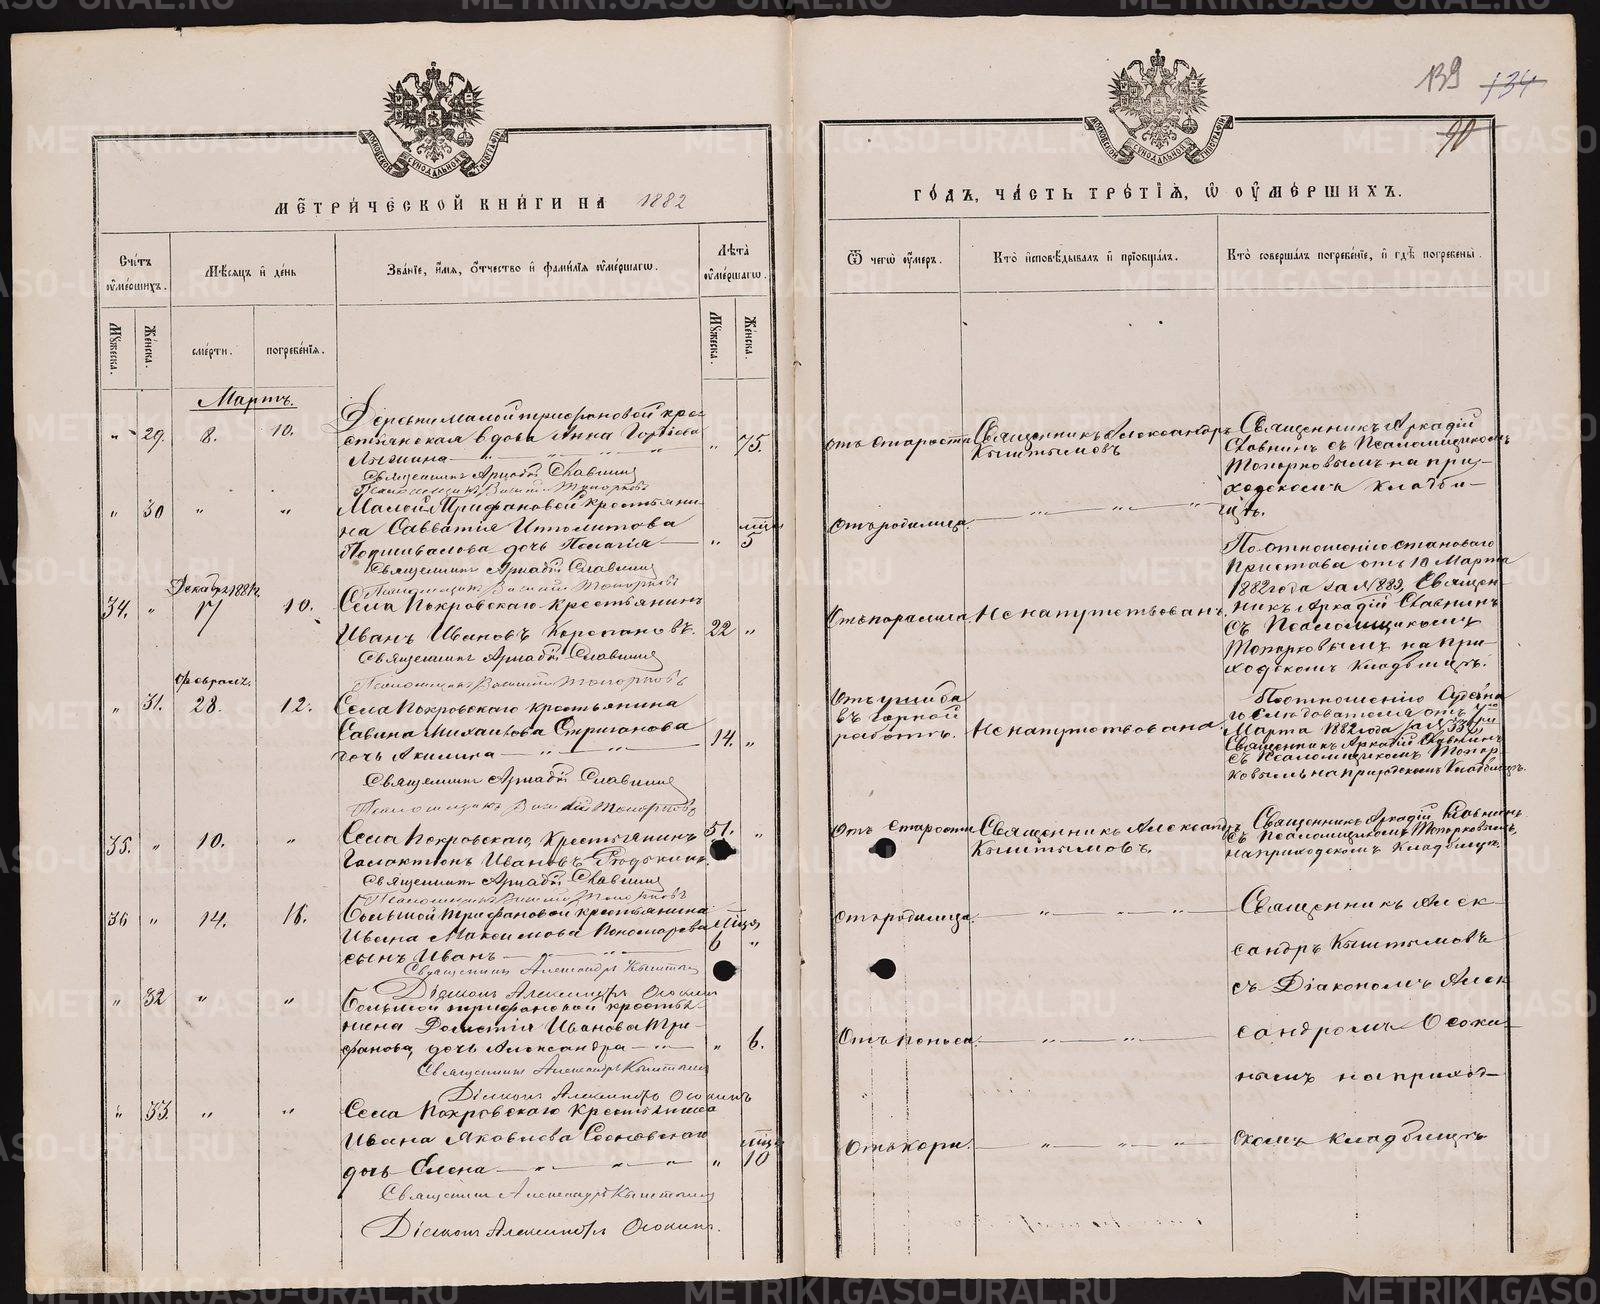 139 134
90
МОСКОВСКОЙ СѴНОДАЛЬНОЙ ТИПОГРАФІИ
МОСКОВСКОЙ СѴНОДАЛЬНОЙ ТИПОГРАФІИ
МЕТРИЧЕСКОЙ КНИГИ НА 1882
ГОДЪ, ЧАСТЬ ТРЕТІЯ, Ѡ ОУМЕРШИХЪ.
Счетъ оумершихъ.
Мѣсяцъ и день
Званіе, имя, отчество и фамилія оумершагѡ.
Лѣта оумершагѡ.
Ѿ чегѡ оумеръ.
Кто исповѣдывалъ и пріобщалъ.
Кто совершалъ погребеніе, и гдѣ погребены.
Мужеска. Женска. смерти. погребенія. Мужеска. Женска.
Мартъ.
„ 29. 8. 10.
Деревни Малой Трифановой кре-
стьянская вдова Анна
„ 75.
Отъ старости
Священникъ Александръ
Кыштымовъ
Священникъ Аркадій
Славнинъ съ Псаломщикомъ
Топорковымъ на при-
ходскомъ кладби-
щѣ.
Священникъ Аркадій Славнинъ
Псаломщикъ Василій Топорковъ
„ 30 „ „
Малой Трифановой крестьяни-
на Савватія Ипполитова
дочь Пелагія
„ мцъ 5
Отъ родимца. „ „ „
Священникъ Аркадій Славнинъ
Псаломщикъ Василій Топорковъ
Декабрь 1881 г.
34. „ 17 10.
Села Покровскаго крестьянинъ
Иванъ Ивановъ
22 „
Отъ паралича.
Не напутствованъ.
По отношенію становаго
Пристава отъ 10 Марта
1882 года за № 889, Священ-
никъ Аркадій Славнинъ
съ Псаломщикомъ
Топорковымъ на при-
ходскомъ кладбищѣ.
Священникъ Аркадій Славнинъ
Псаломщикъ Василій Топорковъ
Февраль.
„ 31. 28. 12.
Села Покровскаго крестьянина
Савина Михайлова Стриганова
дочь Акилина „ „
14. „
Отъ ушиба
въ горной
работѣ.
Не напутствована
По отношенію Судебна-
го Слѣдователя отъ
Марта 1882 года за №
Священникъ Аркадій Славнинъ
съ Псаломщикомъ Топор-
ковымъ на приходскомъ кладбищѣ.
Священникъ Аркадій Славнинъ
Псаломщикъ Василій Топорковъ
35. „ 10. „
Села Покровскаго крестьянинъ
Галактіонъ Ивановъ
51. „
Отъ старости
Священникъ Александръ
Кыштымовъ.
Священникъ Аркадій Славнинъ
съ Псаломщикомъ Топорковымъ,
на приходскомъ кладбищѣ.
Священникъ Аркадій Славнинъ
Псаломщикъ Василій Топорковъ
36 „ 14. 16.
Большой Трифановой крестьянина
Ивана Максимова Пономарева
сынъ Иванъ „ „
6 „
Отъ родимца. „ „ „
Священникъ Алек-
сандръ Кыштымовъ
съ Діакономъ Алек-
сандромъ Осоки-
нымъ на приход-
скомъ кладбищѣ
Священникъ Александръ Кыштымовъ
Діаконъ Александръ Осокинъ
„ 32 „ „
Большой Трифановой крестья-
нина Иванова Три-
фанова, дочь Александра „
„ 6.
Отъ поноса. „ „ „
Священникъ Александръ Кыштымовъ
Діаконъ Александръ Осокинъ
„ 33. „ „
Села Покровскаго крестьянина
Ивана Яковлева Сосновскаго
дочь Елена „ „ „
„ мцъ 10
Отъ кори. „ „ „
Священникъ Александръ Кыштымовъ
Діаконъ Александръ Осокинъ.
METRIKI.GASO-URAL.RU